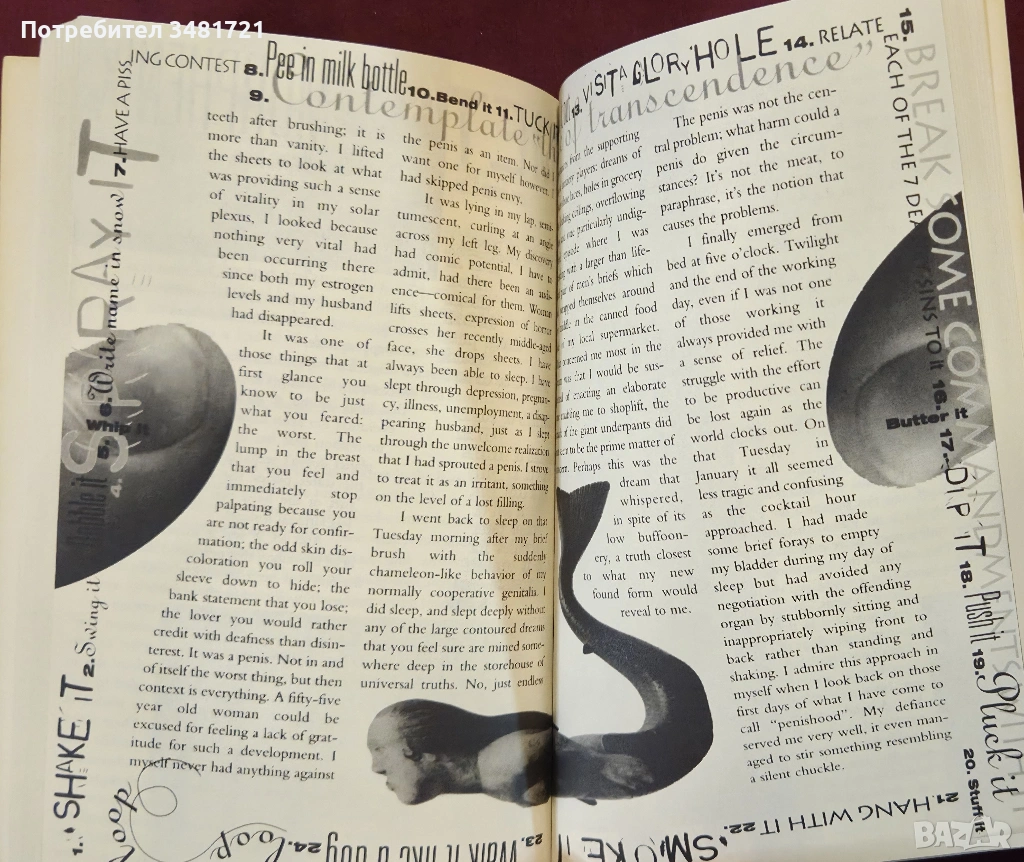 Потребител 3481721
ING CONTEST 8. Pee in milk bottle 10. Bend it 11. TUCK
9. Contemplate "th
7. HAVE A PISS
6. Write name in snow
SPRAY IT
5. Whip it
4.
2. Swing it
1. SHAKE iT
loop
teeth after brushing; it is
more than vanity. I lifted
the sheets to look at what
was providing such a sense
of vitality in my solar
plexus, I looked because
nothing very vital had
been occurring there
since both my estrogen
levels and my husband
had disappeared.
It was one of
those things that at
first glance you
know to be just
what you feared:
the worst. The
lump in the breast
that you feel and
immediately stop
palpating because you
are not ready for confir-
mation; the odd skin dis-
coloration you roll your
sleeve down to hide; the
bank statement that you lose;
the lover you would rather
credit with deafness than disin-
terest. It was a penis. Not in and
of itself the worst thing, but then
context is everything. A fifty-five
year old woman could be
excused for feeling a lack of grat-
itude for such a development. I
myself never had anything against
the penis as an item. Nor did I
want one for myself however. I
had skipped penis envy.
It was lying in my lap, semi-
tumescent, curling at an angle
across my left leg. My discovery
had comic potential, I have to
admit, had there been an audi-
ence—comical for them. Woman
lifts sheets, expression of horror
crosses her recently middle-aged
face, she drops sheets. I have
always been able to sleep. I have
slept through depression, pregnan-
cy, illness, unemployment, a disap-
pearing husband, just as I slept
through the unwelcome realization
that I had sprouted a penis. I strove
to treat it as an irritant, something
on the level of a lost filling.
I went back to sleep on that
Tuesday morning after my brief
brush with the suddenly
chameleon-like behavior of my
normally cooperative genitalia. I
did sleep, and slept deeply without
any of the large contoured dreams
that you feel sure are mined some-
where deep in the storehouse of
universal truths. No, just endless
23. WALK IT LIKE A DOG 24. loop
13. VISIT A GLORY HOLE 14. RELATE
of transcendence"
15.
EACH OF THE 7 DEA
SINS TO IT
BREAK SOME COMMANDMENTS
16.
Butter it
17. DIP iT
18. Push it
19. Pluck it
20. Stuff it
21. HANG WITH IT 22.
SMOKE IT
from the supporting
players: dreams of
faces, holes in grocery
ceilings, overflowing
particularly undig-
where I was
with a larger than life-
of men's briefs which
themselves around
in the canned food
of my local supermarket.
concerned me most in the
was that I would be sus-
of enacting an elaborate
me to shoplift, the
of the giant underpants did
to be the prime matter of
Perhaps this was the
dream that
whispered,
in spite of its
low buffoon-
ery, a truth closest
to what my new
found form would
reveal to me.
The penis was not the cen-
tral problem; what harm could a
penis do given the circum-
stances? It's not the meat, to
paraphrase, it's the notion that
causes the problems.
I finally emerged from
bed at five o'clock. Twilight
and the end of the working
day, even if I was not one
of those working it
always provided me with
a sense of relief. The
struggle with the effort
to be productive can
be lost again as the
world clocks out. On
that Tuesday in
January it all seemed
less tragic and confusing
as the cocktail hour
approached. I had made
some brief forays to empty
my bladder during my day of
sleep but had avoided any
negotiation with the offending
organ by stubbornly sitting and
inappropriately wiping front to
back rather than standing and
shaking. I admire this approach in
myself when I look back on those
first days of what I have come to
call "penishood". My defiance
served me very well, it even man-
aged to stir something resembling
a silent chuckle.
BAZAR